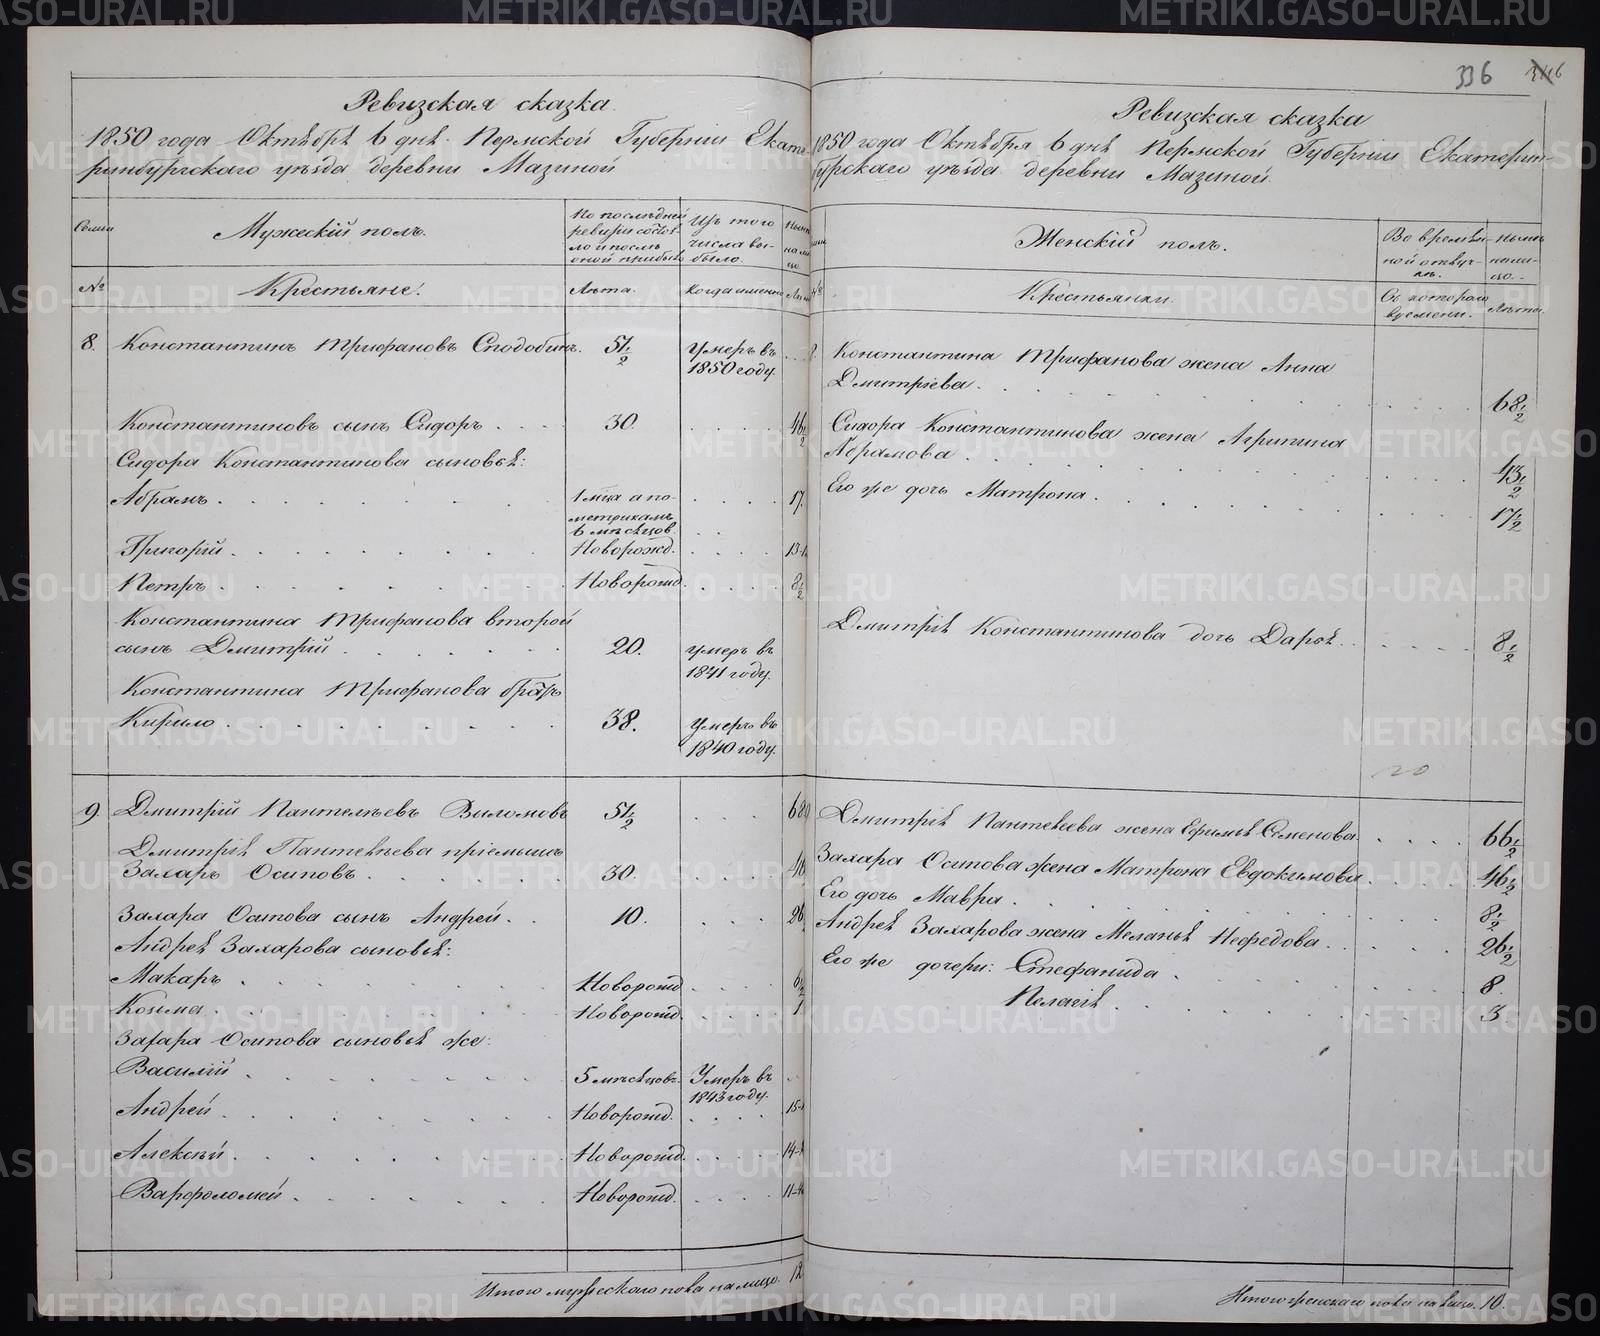 336
Ревизская сказка
1850 года Октября 6 дня Пермской Губернии Екате-
ринбургского уѣзда деревни Мазиной
Семьи
Мужескій полъ.
По послѣдней
ревизіи состоя-
ло и послѣ
оной прибыло
Изъ того
числа вы-
было.
№
Крестьяне.
Лѣта.
Когда именно
8. Константинъ Трифановъ Сподобинъ. 51 1/2 Умеръ въ
1850 году.
Константиновъ сынъ Сидоръ 30. 46 1/2
Сидора Константинова сыновья:
Абрамъ. 1 мца а по 17.
метрикамъ
6 мѣсяцов
Григорій. Новорожд.
Петръ. Новорожд. 8 1/2
Константина Трифанова второй
сынъ Дмитрій 20. умеръ въ
1841 году.
Константина Трифанова братъ
Кирило 38. Умеръ въ
1840 году.
9. Дмитрій Пантелѣевъ Выломовъ 51 1/2
Дмитрія Пантелѣева пріемышъ
Захаръ Осиповъ. 30. 46
Захара Осипова сынъ Андрей. 10. 26
Андрея Захарова сыновья:
Макаръ Новорожд.
Козьма Новорожд. 1
Захара Осипова сыновья же:
Василій 5 мѣсяцовъ. Умеръ въ
1843 году.
Андрей Новорожд.
Алексѣй Новорожд.
Варфоломей Новорожд.
Итого мужескаго пола на лицо. 12
Ревизская сказка
1850 года Октября 6 дня Пермской Губерніи Екатерин-
бурскаго уѣзда деревни Мазиной.
Женскій полъ.
Во времян-
ной отлуч-
кѣ.
нынѣ
нали-
цо.
Крестьянки.
Съ котораго
времени.
Лѣта.
Константина Трифанова жена Анна
Дмитріева. 68 1/2
Сидора Константинова жена Агрипина
Абрамова 43 1/2
Его же дочь Матрона. 17 1/2
Дмитрія Константинова дочь Дарья. 8 1/2
Дмитрія Пантелеева жена Ефимья Семенова. 66 1/2
Захара Осипова жена Матрона Евдокимова 46 1/2
Его дочь Мавра 8 1/2
Андрея Захарова жена Меланья Нефедова. 26 1/2
Его же дочери: Стефанида 8.
Пелагія 3
Итого женскаго пола на лицо. 10.
METRIKI.GASO-URAL.RU